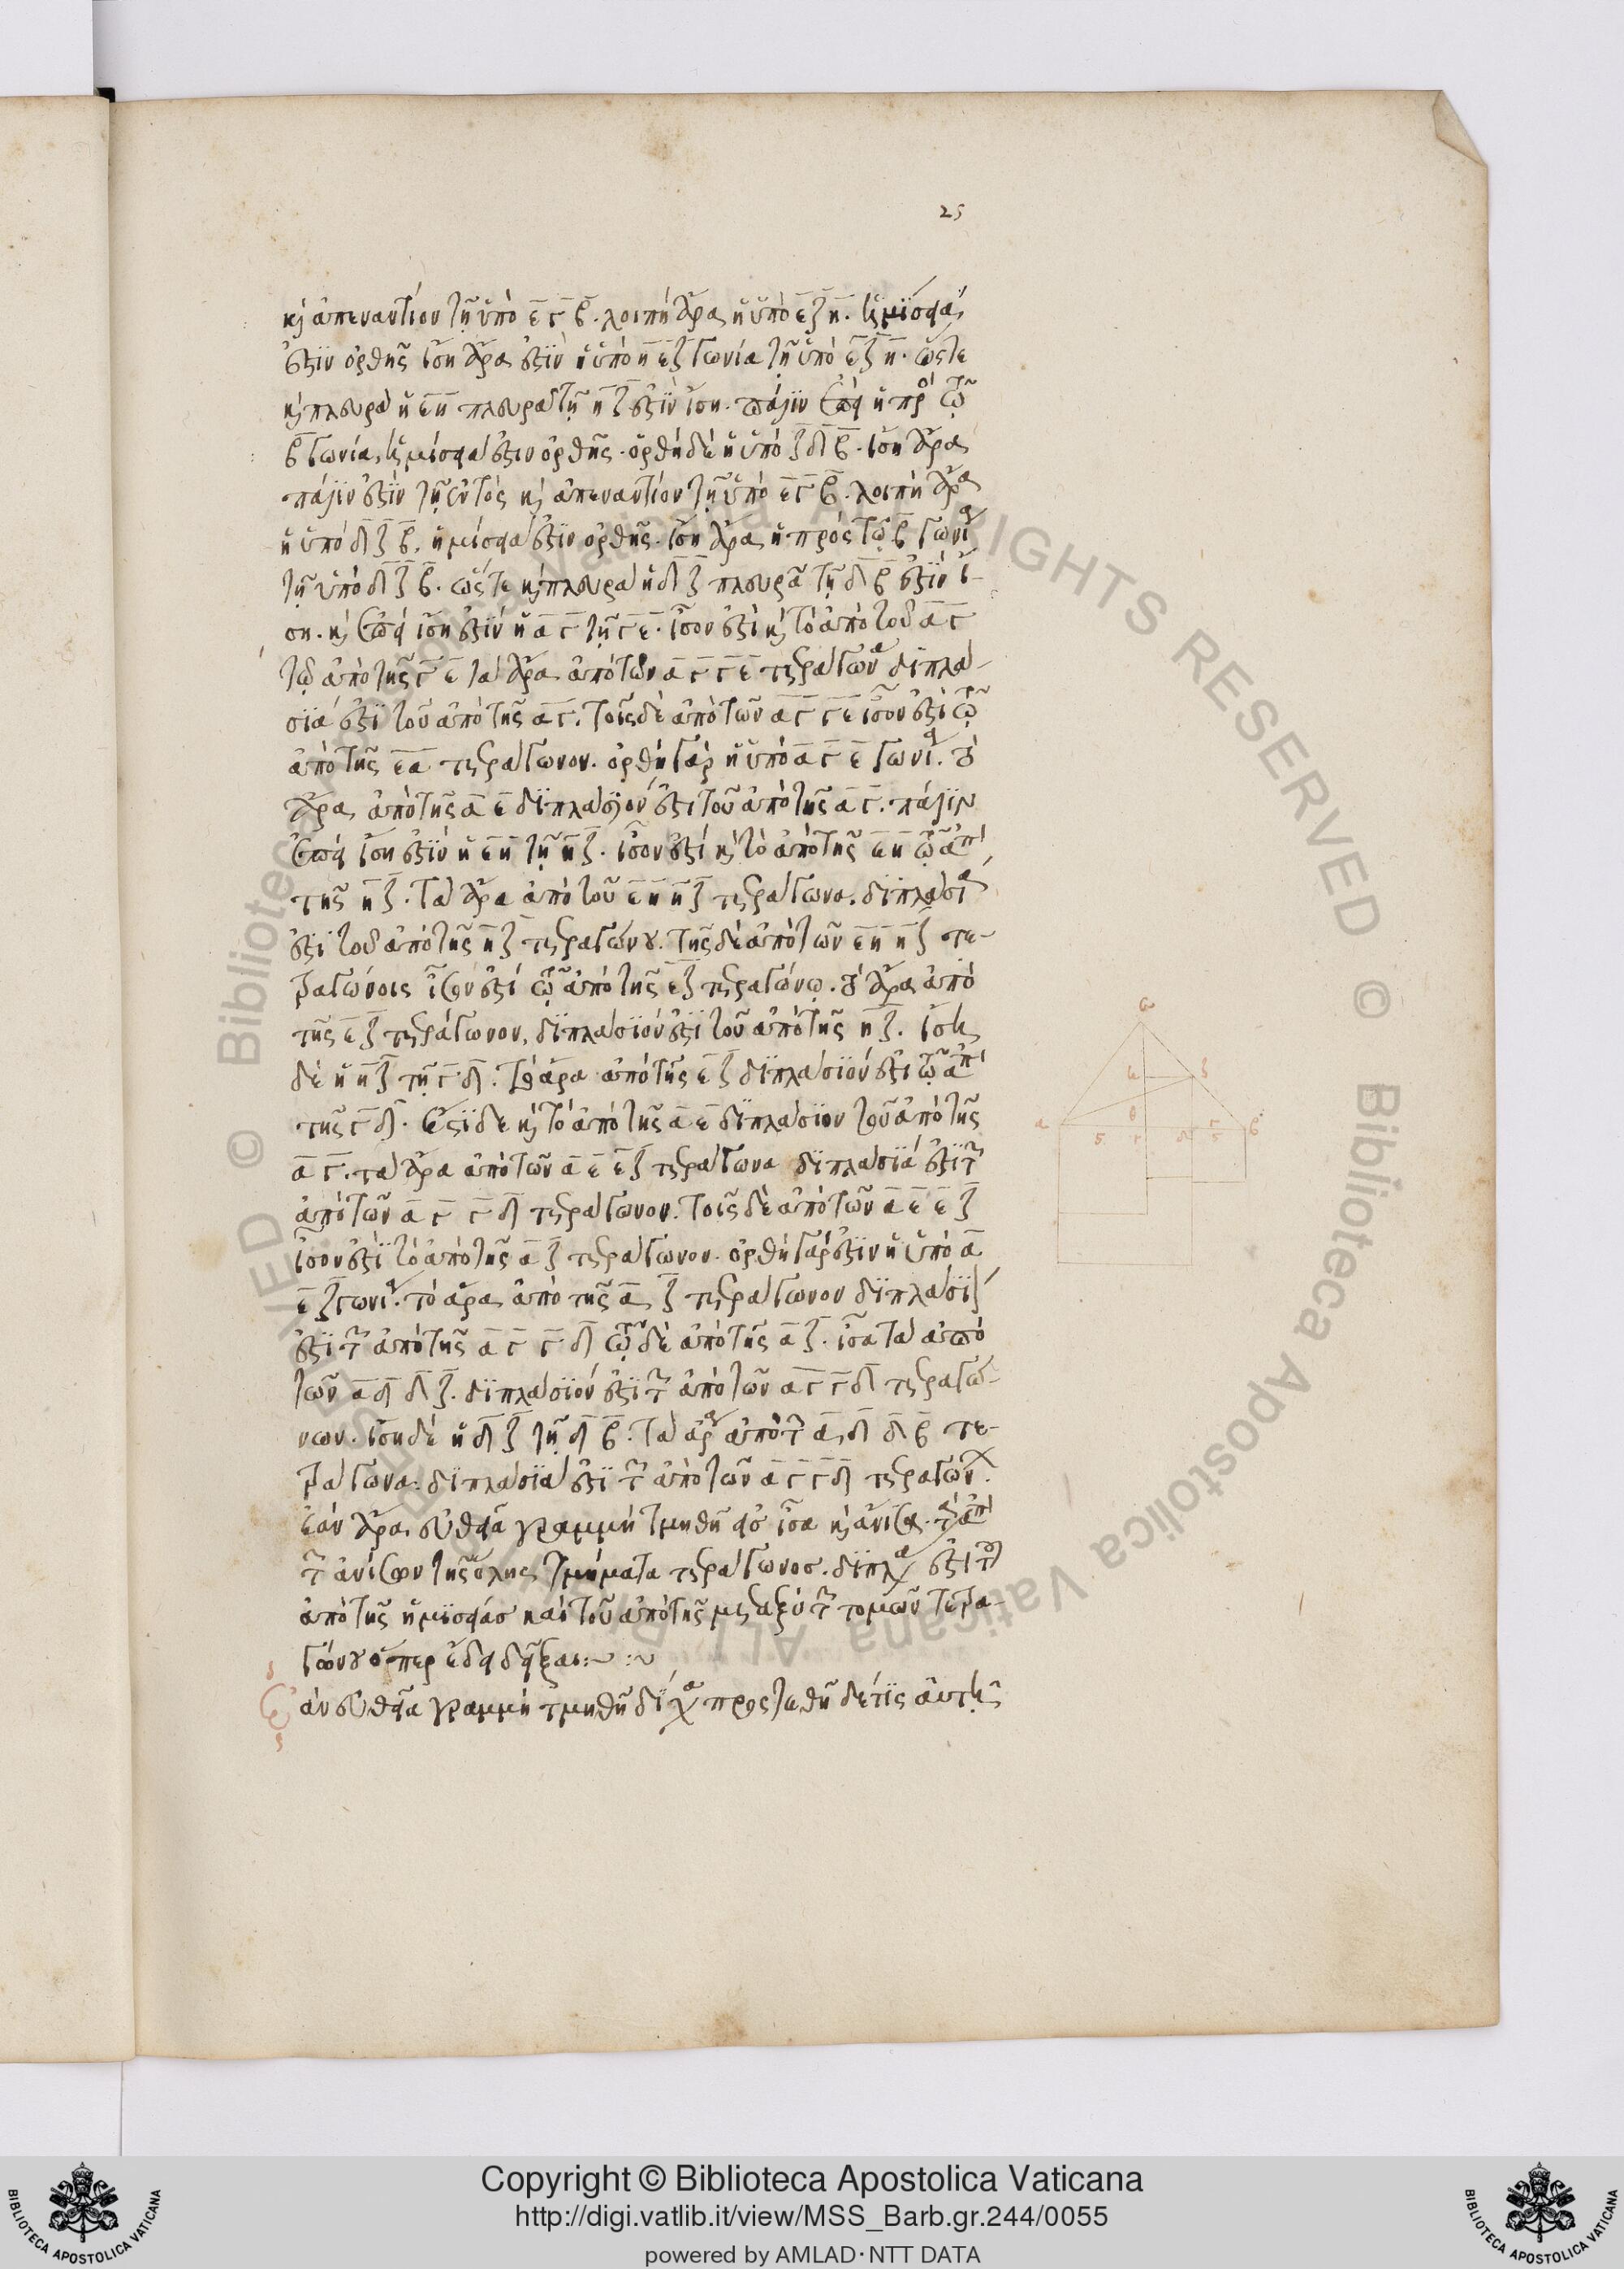 25
κὶ ἀπεναντίον τῇ ὑπὸ ε̅ γ̅ β̅. λοιπὴ ἄρα ἡ ὑπὸ ε̅ ζ̅ η̅. ἡμίσειά
ἐστϊν ὀρθῆς ἴση ἄρα ἐστὶν ἡ ὑπὸ η̅ ε̅ ζ̅ γωνία τῇ ὑπὸ ε̅ ζ̅ η̅. ὥστε
κὶ πλευρὰ ἡ ε̅ η̅ πλευρᾶ τῇ η̅ ζ̅ ἐστϊν ἴση. πάλϊν ἐπεὶ ἡ πρὸ τῷ
β̅ γωνία, ἡμίσειά ἐστιν ὀρθῆς. ὀρθὴ δὲ ἡ ὑπὸ ζ̅ δ̅ β̅. ἴση ἄρα
πάλϊν ἐστϊν τῇ ἐντὸς κὶ ἀπεναντίον τῇ ὑπὸ ε̅ γ̅ β̅. λοιπὴ ἄρα
ἡ ὑπὸ δ̅ ζ̅ β̅. ἡμίσειά ἐστϊν ὀρθῆς. ἴση ἄρα ἡ πρὸς τῷ β̅ γωνία
τῇ ὑπὸ δ̅ ζ̅ β̅. ὥστε κὶ πλευρὰ ἡ δ̅ ζ̅ πλευρᾶ τῇ δ̅ β̅ ἐστϊν ἴ-
ση. κὶ ἐπεὶ ἴση ἐστϊν ἡ α̅ γ̅ τῇ γ̅ ε̅. ἴσον ἐστὶ κὶ τὸ ἀπὸ τοῦ α̅ γ̅
τῷ ἀπὸ τῆς γ̅ ε̅ τὰ ἄρα ἀπὸ τῶν α̅ γ̅ γ̅ ε̅ τετράγωνα διπλά-
σϊά ἐστϊ τοῦ ἀπὸ τῆς α̅ γ̅. τοῖς δὲ ἀπὸ τῶν α̅ γ̅ γ̅ ε̅ ἴσον ἐστὶ τῷ
ἀπὸ τῆς ε̅ α̅ τετράγωνον. ὀρθὴ γὰρ ἡ ὑπὸ α̅ γ̅ ε̅ γωνία. τὸ
ἄρα ἀπὸ τῆς α̅ ε̅ δϊπλάσϊόν ἐστι τοῦ ἀπὸ τῆς α̅ γ̅. πάλϊν
ἐπεὶ ἴση ἐστϊν ἡ ε̅ η̅ τῇ η̅ ζ̅. ἴσον ἐστί κὶ τὸ ἀπὸ τῆς ε̅ η̅ τῷ ἀπὸ
τῆς η̅ ζ̅. τὰ ἄρα ἀπὸ τοῦ ε̅ η̅ η̅ ζ̅ τετράγωνα. δϊπλάσια
ἐστϊ τοῦ ἀπὸ τῆς η̅ ζ̅ τετραγώνου. τῆς δὲ ἀπὸ τῶν ε̅ η̅ η̅ ζ̅ τε-
τραγώνοις ἴσον ἐστί τῷ ἀπὸ τῆς ε̅ ζ̅ τετραγώνῳ. τὸ ἄρα ἀπὸ
τῆς ε̅ ζ̅ τετράγωνον, δϊπλάσϊόν ἐστϊ τοῦ ἀπὸ τῆς η̅ ζ̅. ἴση
δὲ ἡ η̅ ζ̅ τῇ γ̅ δ̅. τὸ ἄρα ἀπὸ τῆς ε̅ ζ̅ δϊπλάσϊόν ἐστι τῷ ἀπὸ
τῆς γ̅ δ̅. ἔστϊ δε κὶ τὸ ἀπὸ τῆς α̅ ε̅ δϊπλάσϊον τοῦ ἀπὸ τῆς
α̅ γ̅. τὰ ἄρα ἀπὸ τῶν α̅ ε̅ ε̅ ζ̅ τετράγωνα δϊπλάσϊά ἐστϊ τῶν
ἀπὸ τῶν α̅ γ̅ γ̅ δ̅ τετράγωνον. τοῖς δὲ ἀπὸ τῶν α̅ ε̅ ε̅ ζ̅
ἴσον ἐστϊ τὸ ἀπὸ τῆς α̅ ζ̅ τετραγώνον. ὀρθὴ γάρ ἐστϊν ἡ ὑπὸ α̅
ε̅ ζ̅ γωνία. τὸ ἄρα ἀπὸ τῆς α̅ ζ̅ τετράγωνον δϊπλάσϊ
ἐστϊ τῶν ἀπὸ τῆς α̅ γ̅ γ̅ δ̅ τῷ δὲ ἀπὸ τῆς α̅ ζ̅. ἴσα τὰ ἀπὸ
τῶν α̅ δ̅ δ̅ ζ̅. δϊπλάσϊόν ἐστϊ τῶν ἀπὸ τῶν α̅ γ̅ γ̅ δ̅ τετραγώ-
νων. ἴση δὲ ἡ δ̅ ζ̅ τῇ δ̅ β̅. τὰ ἄρα ἀπὸ τῶν α̅ δ̅ δ̅ β̅ τε-
τράγωνα. δϊπλάσϊα ἐστϊ τῶν ἀπὸ τῶν α̅ γ̅ γ̅ δ̅ τετραγών.
ἐὰν ἄρα εὐθεῖα γραμμὴ τμηθῇ εἰς ἴσα κὶ ἄνισα. τὰ ἀπὸ
τῶν ἀνίσων τῆς ὅλης τμήματα τετράγωνοσ. δϊπλα ἐστι τοῦ
ἀπὸ τῆς ἡμϊσείασ καὶ τοῦ ἀπὸ τῆς μεταξὺ τῶν τομῶν τετρα-
γώνου ὅπερ ἔδει δεῖξαι:~ :~
Ἐὰν εὐθεῖα γραμμὴ τμηθῇ δίχα προςτεθῇ δέ τϊς αὐτῇ
α
ε
κ
ζ
θ
α
γ
δ
β